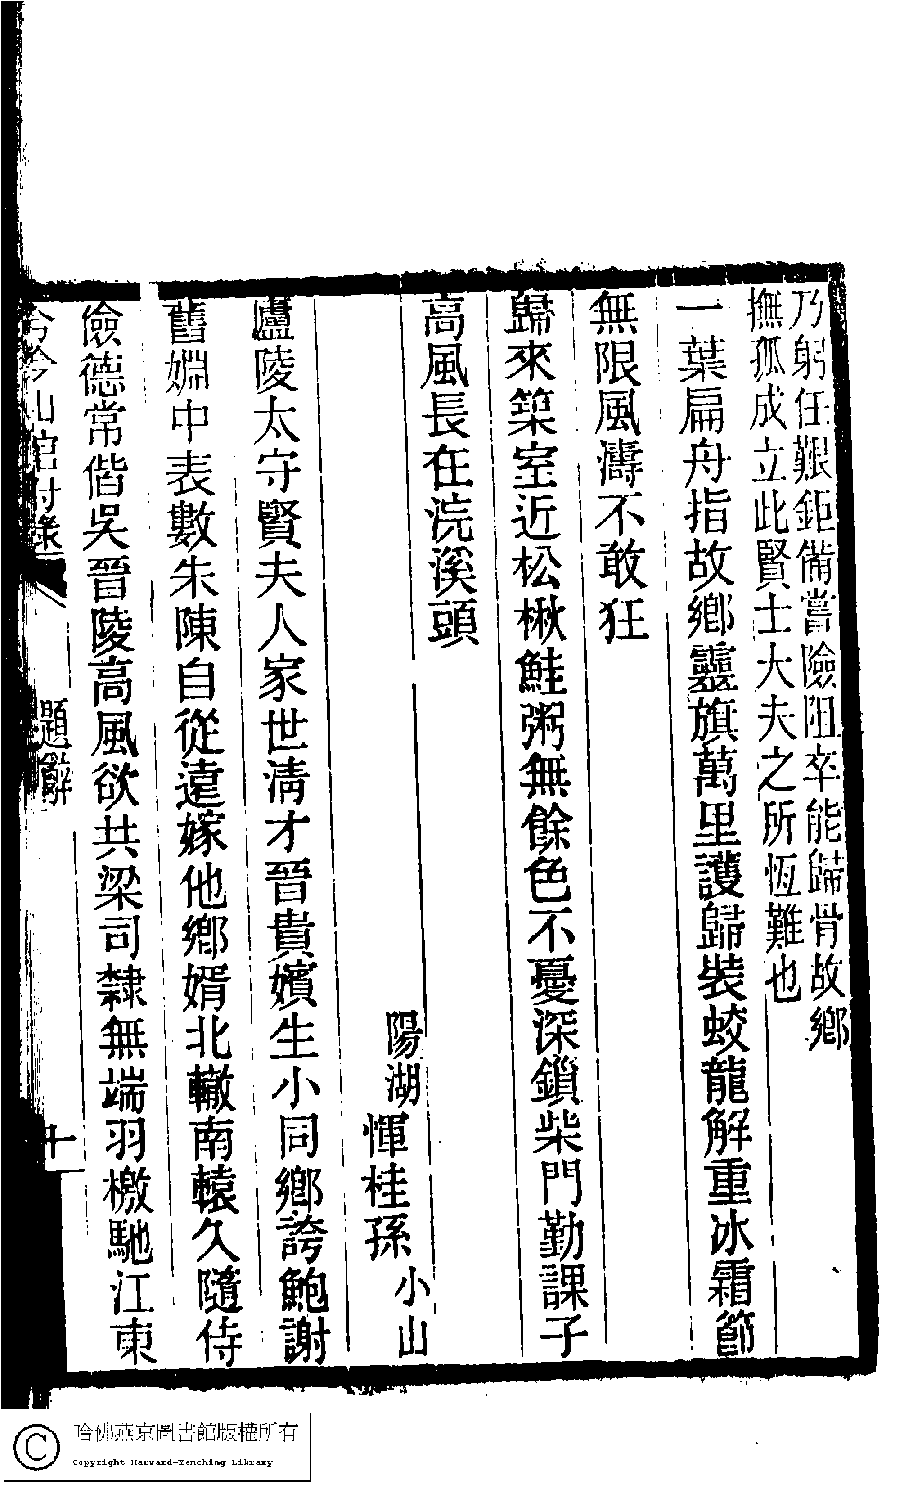 乃躬任艱鉅備嘗險阻卒能歸骨故鄉
撫孤成立此賢士大夫之所恆難也
一葉扁舟指故鄉靈旗萬里護歸裝蛟龍解重冰霜節
無限風濤不敢狂
歸來築室近松楸鮭粥無餘色不憂深鎖柴門勤課子
高風長在浣溪頭
陽湖惲桂孫小山
廬陵太守賢夫人家世淸才晉貴嬪生小同鄉誇鮑謝
舊姻中表數朱陳自從遠嫁他鄉婿北轍南轅久隨侍
儉德常偕吳晉陵高風欲共梁司隸無端羽檄馳江東
吟山館附錄
題辭
十
哈佛燕京圖書館版權所有
Copyright Harvard-Yenching Library